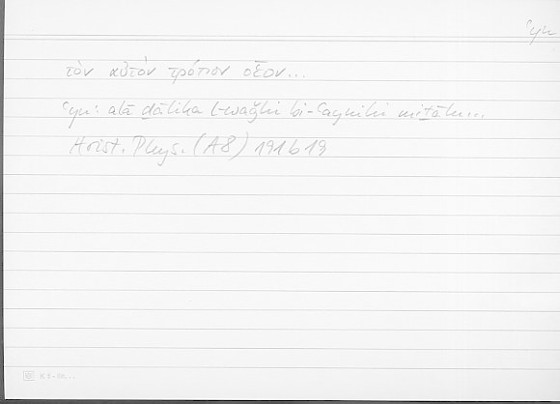 ʿyn
τὸν αὐτὸν τρόπον οἷον...
ʿyn: ʿalā ḏālika l-waǧhi bi-ʿaynihi miṯālu...
Arist. Phys. (A8) 191b19